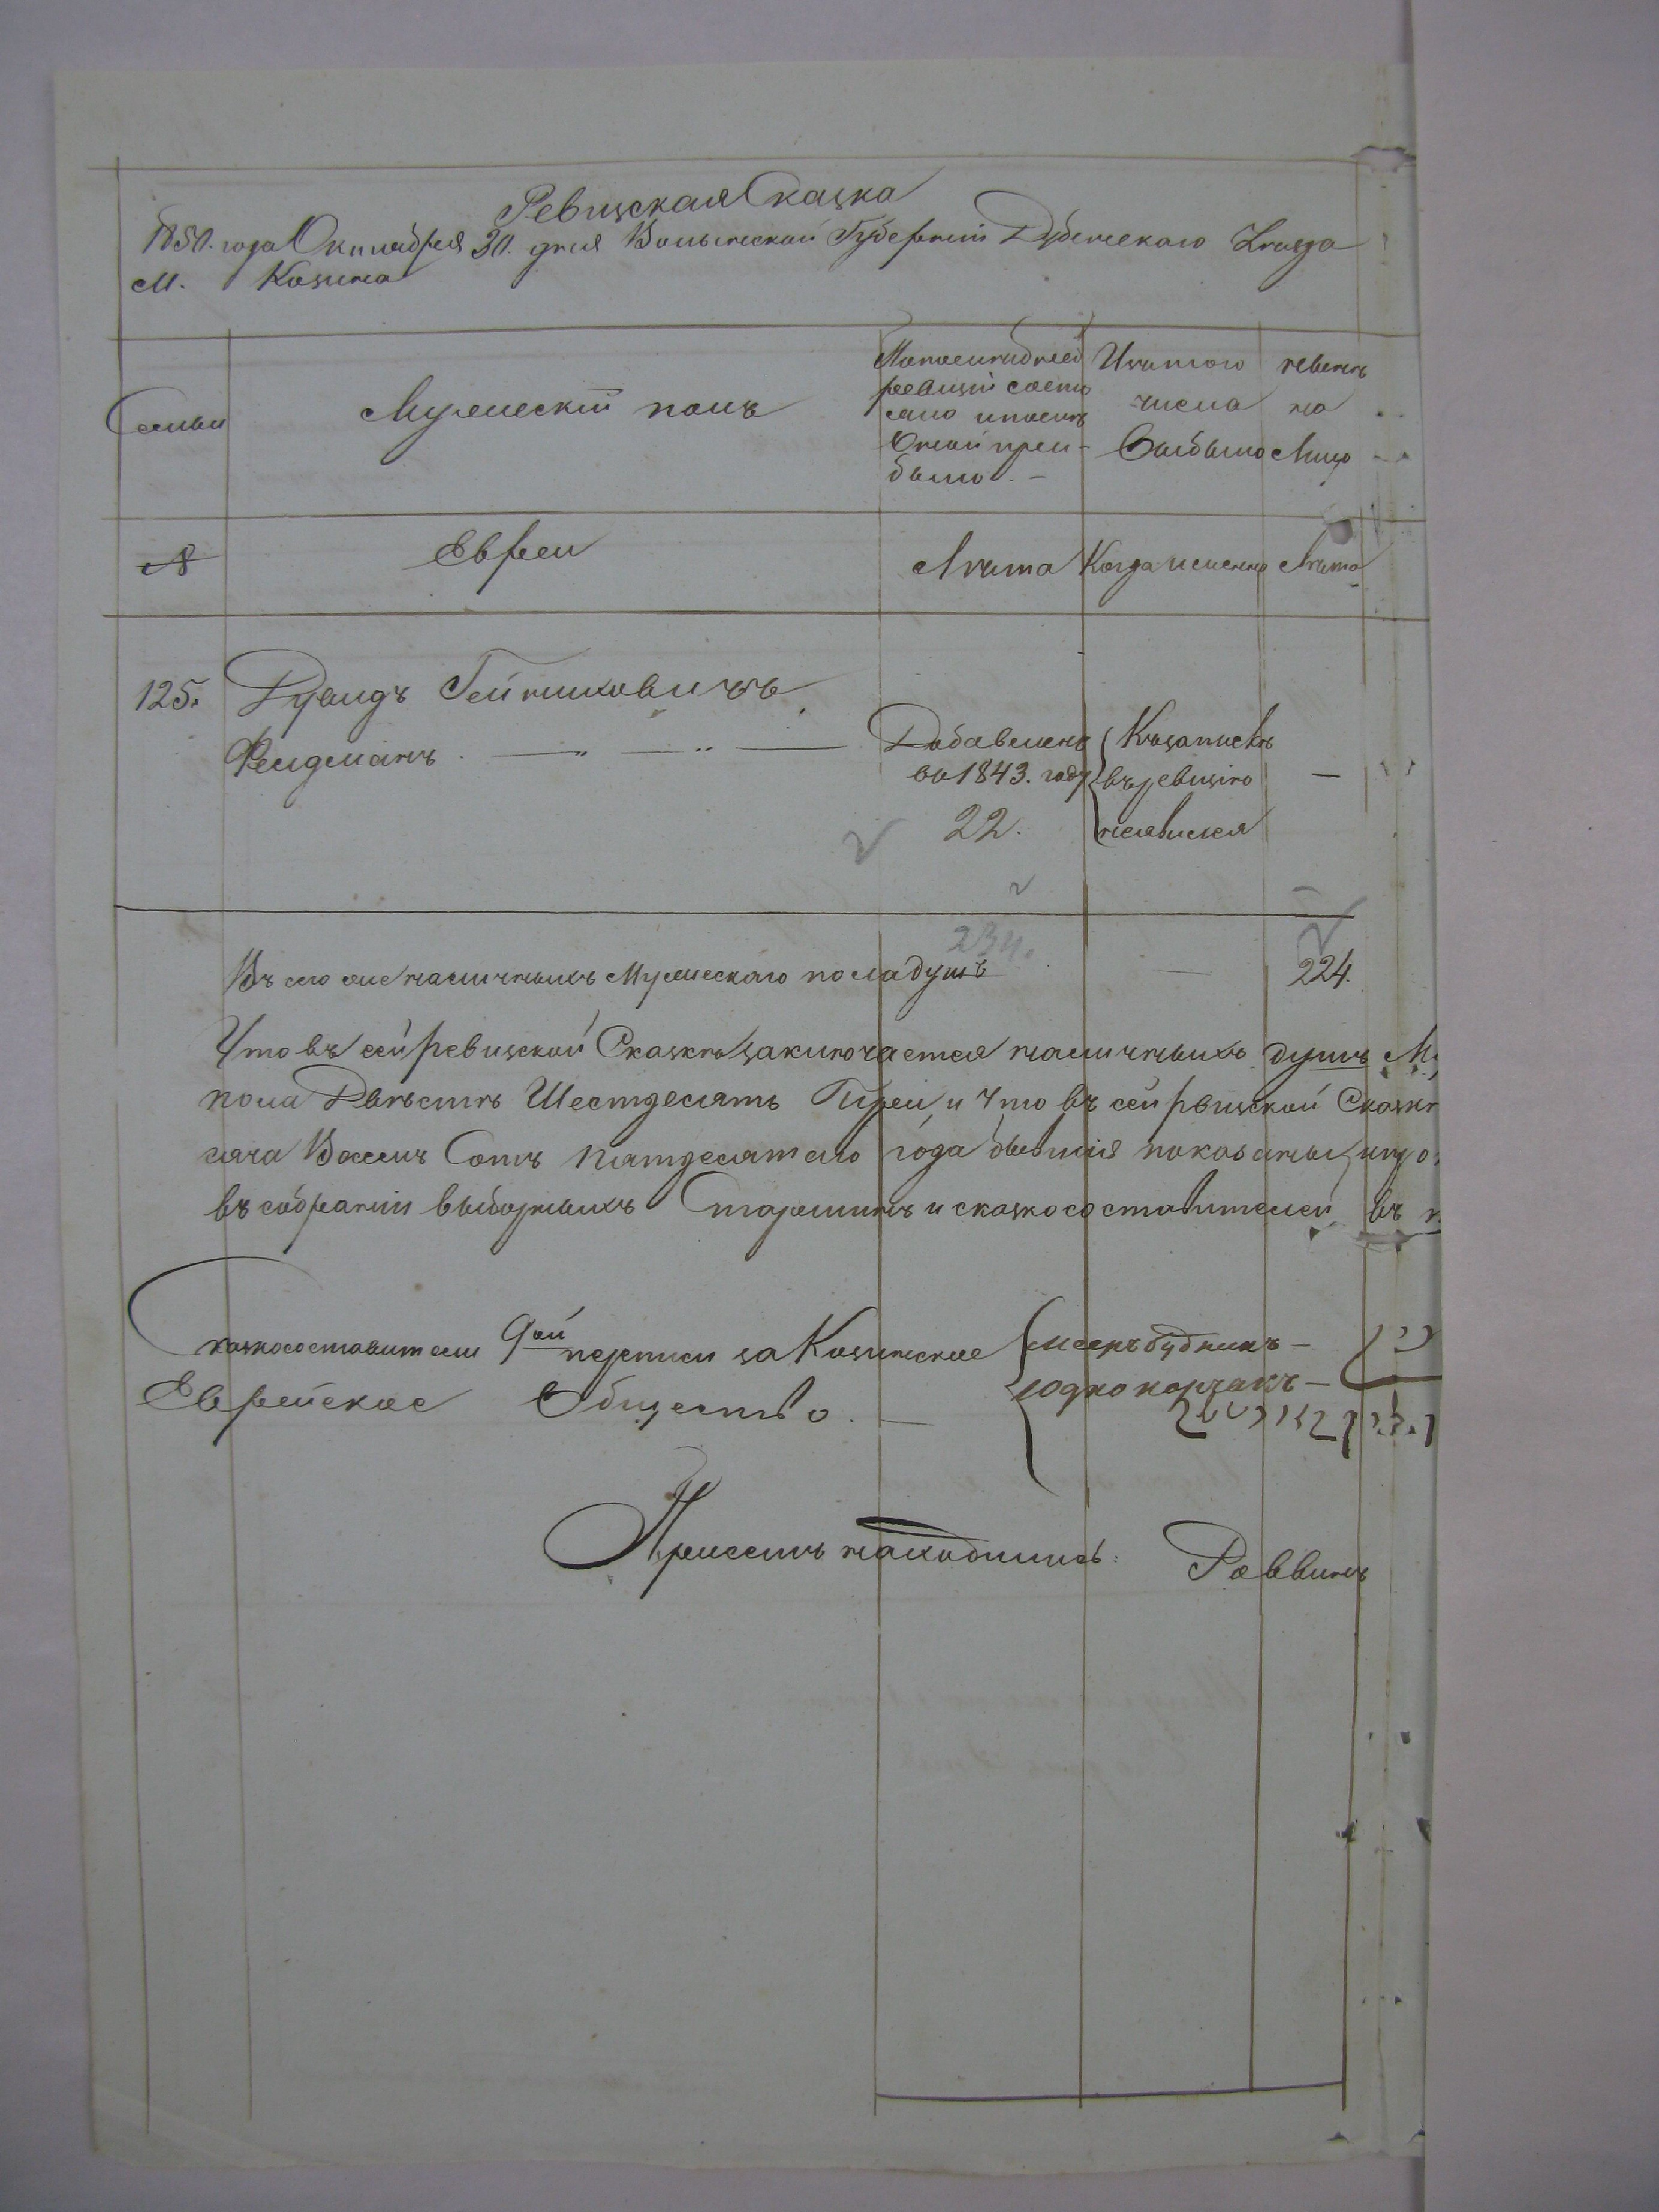 Ревизская Сказка
1850. года Октиабрея 30. дня Волынской Губерній Дубенскаго Уѣзда
М. Козина
Семьи
Мужескій полъ
ревизій состо
было. –
Изъ того
числа
выбыло
на
Лицо
№
Евреи
Лѣта
Когда именно
Лѣта
125.
Дувидъ
Фелдманъ
Добавленъ
во 1843. году
22.
Къ запискѣ
въ ревизію
неявился
234.
Въ сего же наличныхъ Мужескаго пола душъ
224.
Что въ сей ревизской Сказкѣ заключается наличныхъ душъ М
пола Двѣстѣ Шестдесятъ Трей, и что въ сей рвизской Сказк
сяча Восемъ Сотъ пятдесятаго года бывшія показаны, и
въ собраніи выборныхъ Старшинъ и сказкосоставителей въ
Сказкосоставители 9ой переписи за Козинское
Еврейское Общество. —
Мееръ будникъ —
юдко корчакъ —
Присемъ находились:
Раввинъ